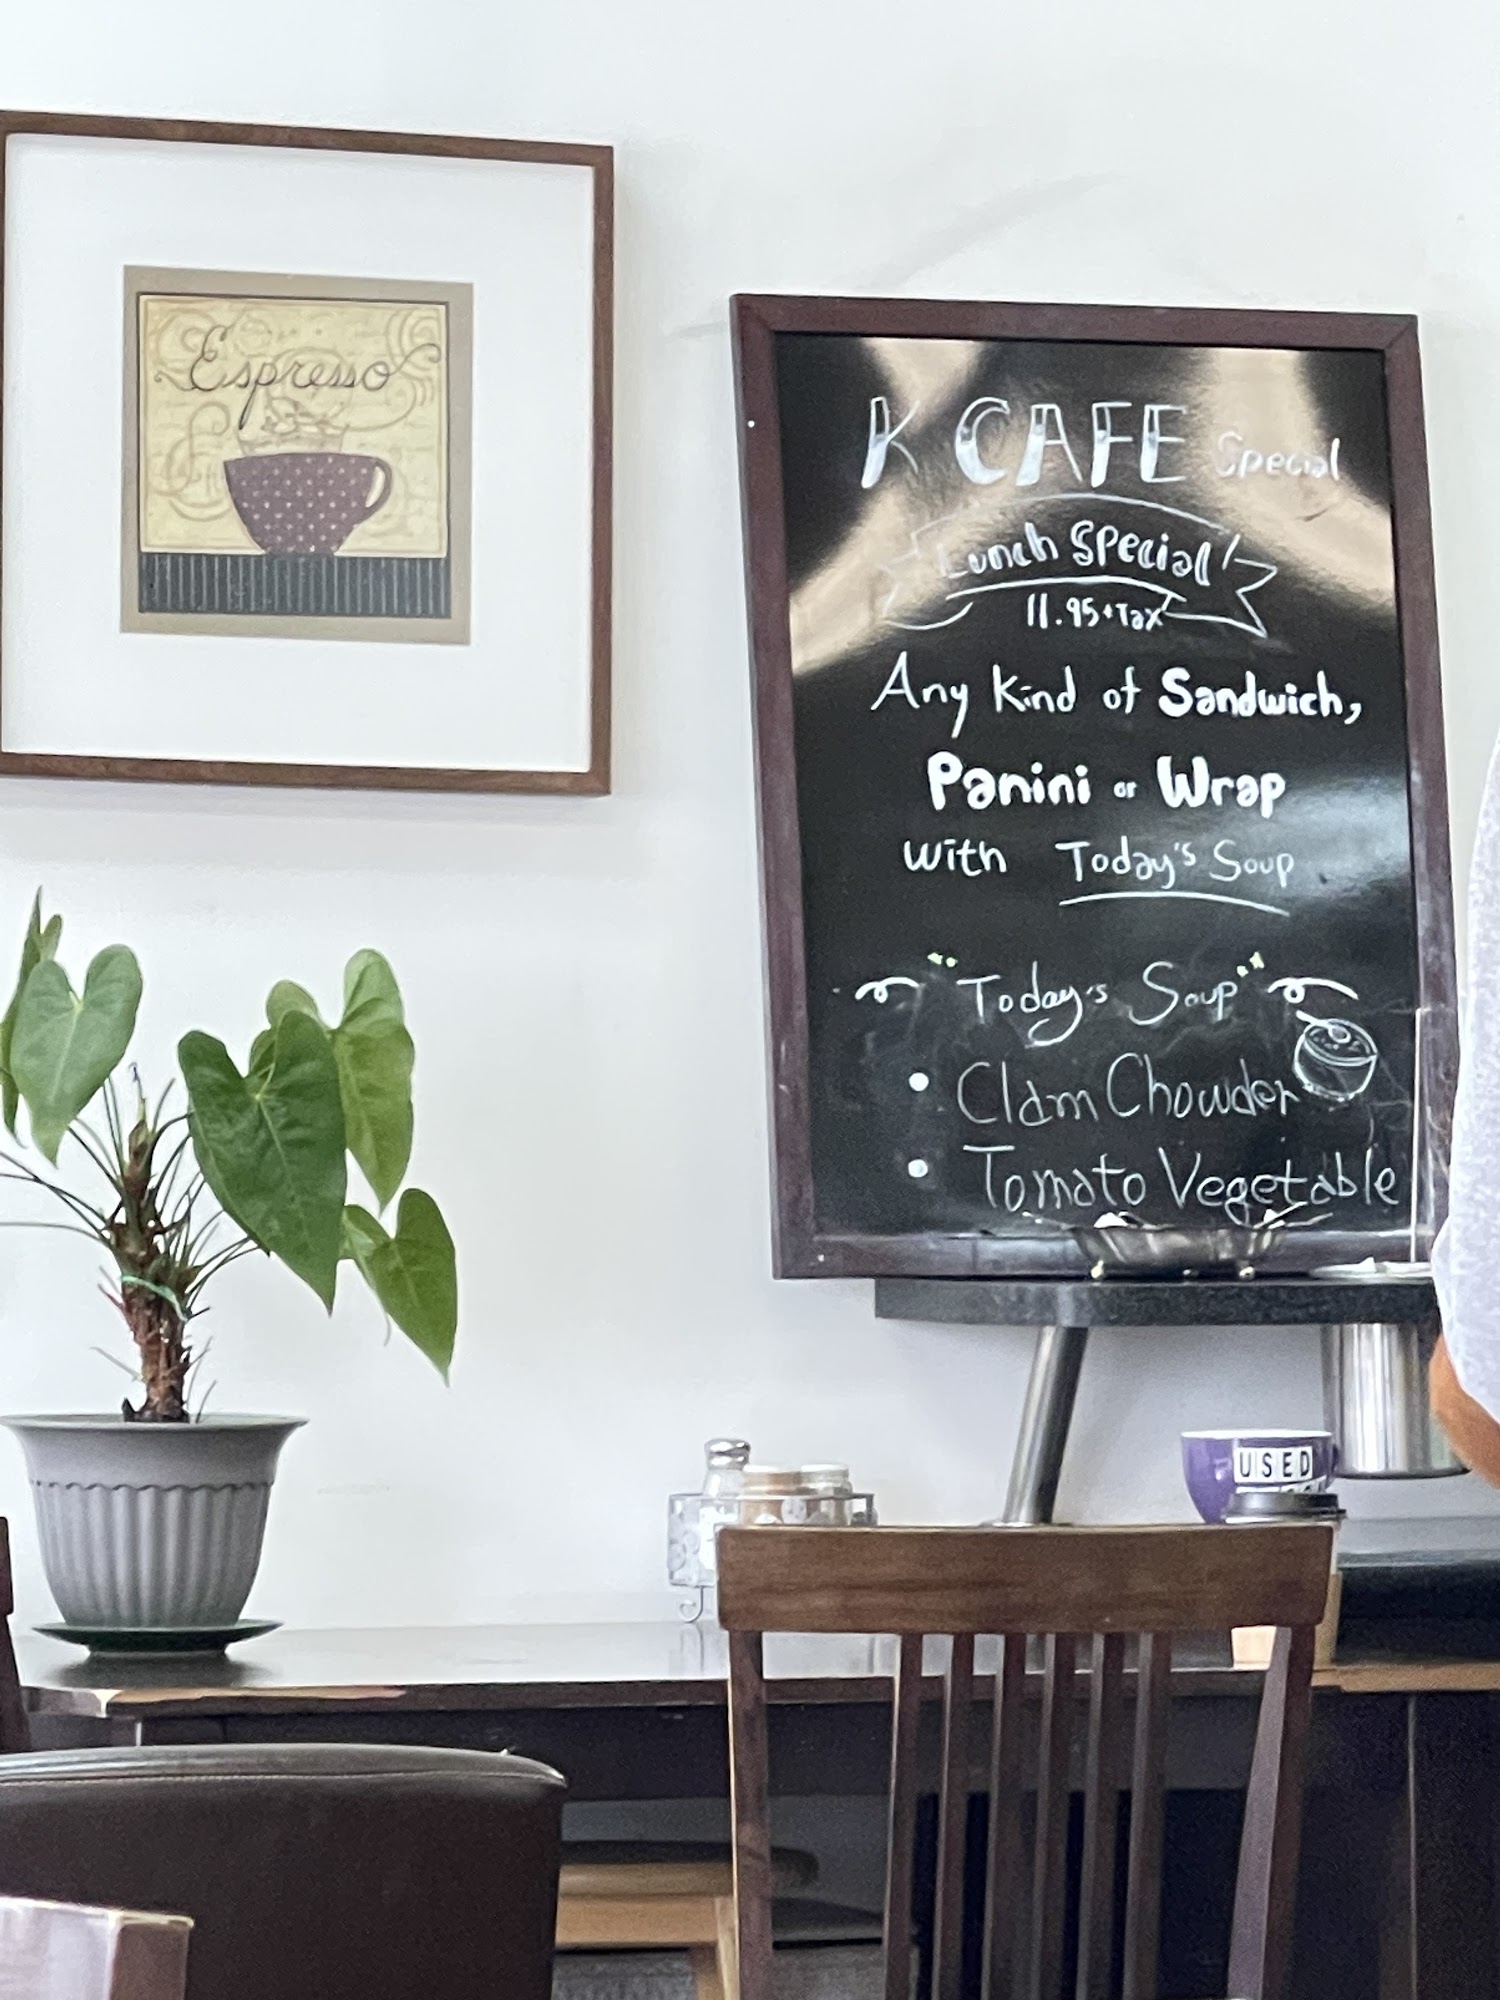 Espresso
K CAFE Special
Lunch Special!
11.95+Tax
Any Kind of Sandwich,
Panini or Wrap
with Today's Soup
"Today's Soup"
• Clam Chowder
• Tomato Vegetable
USED